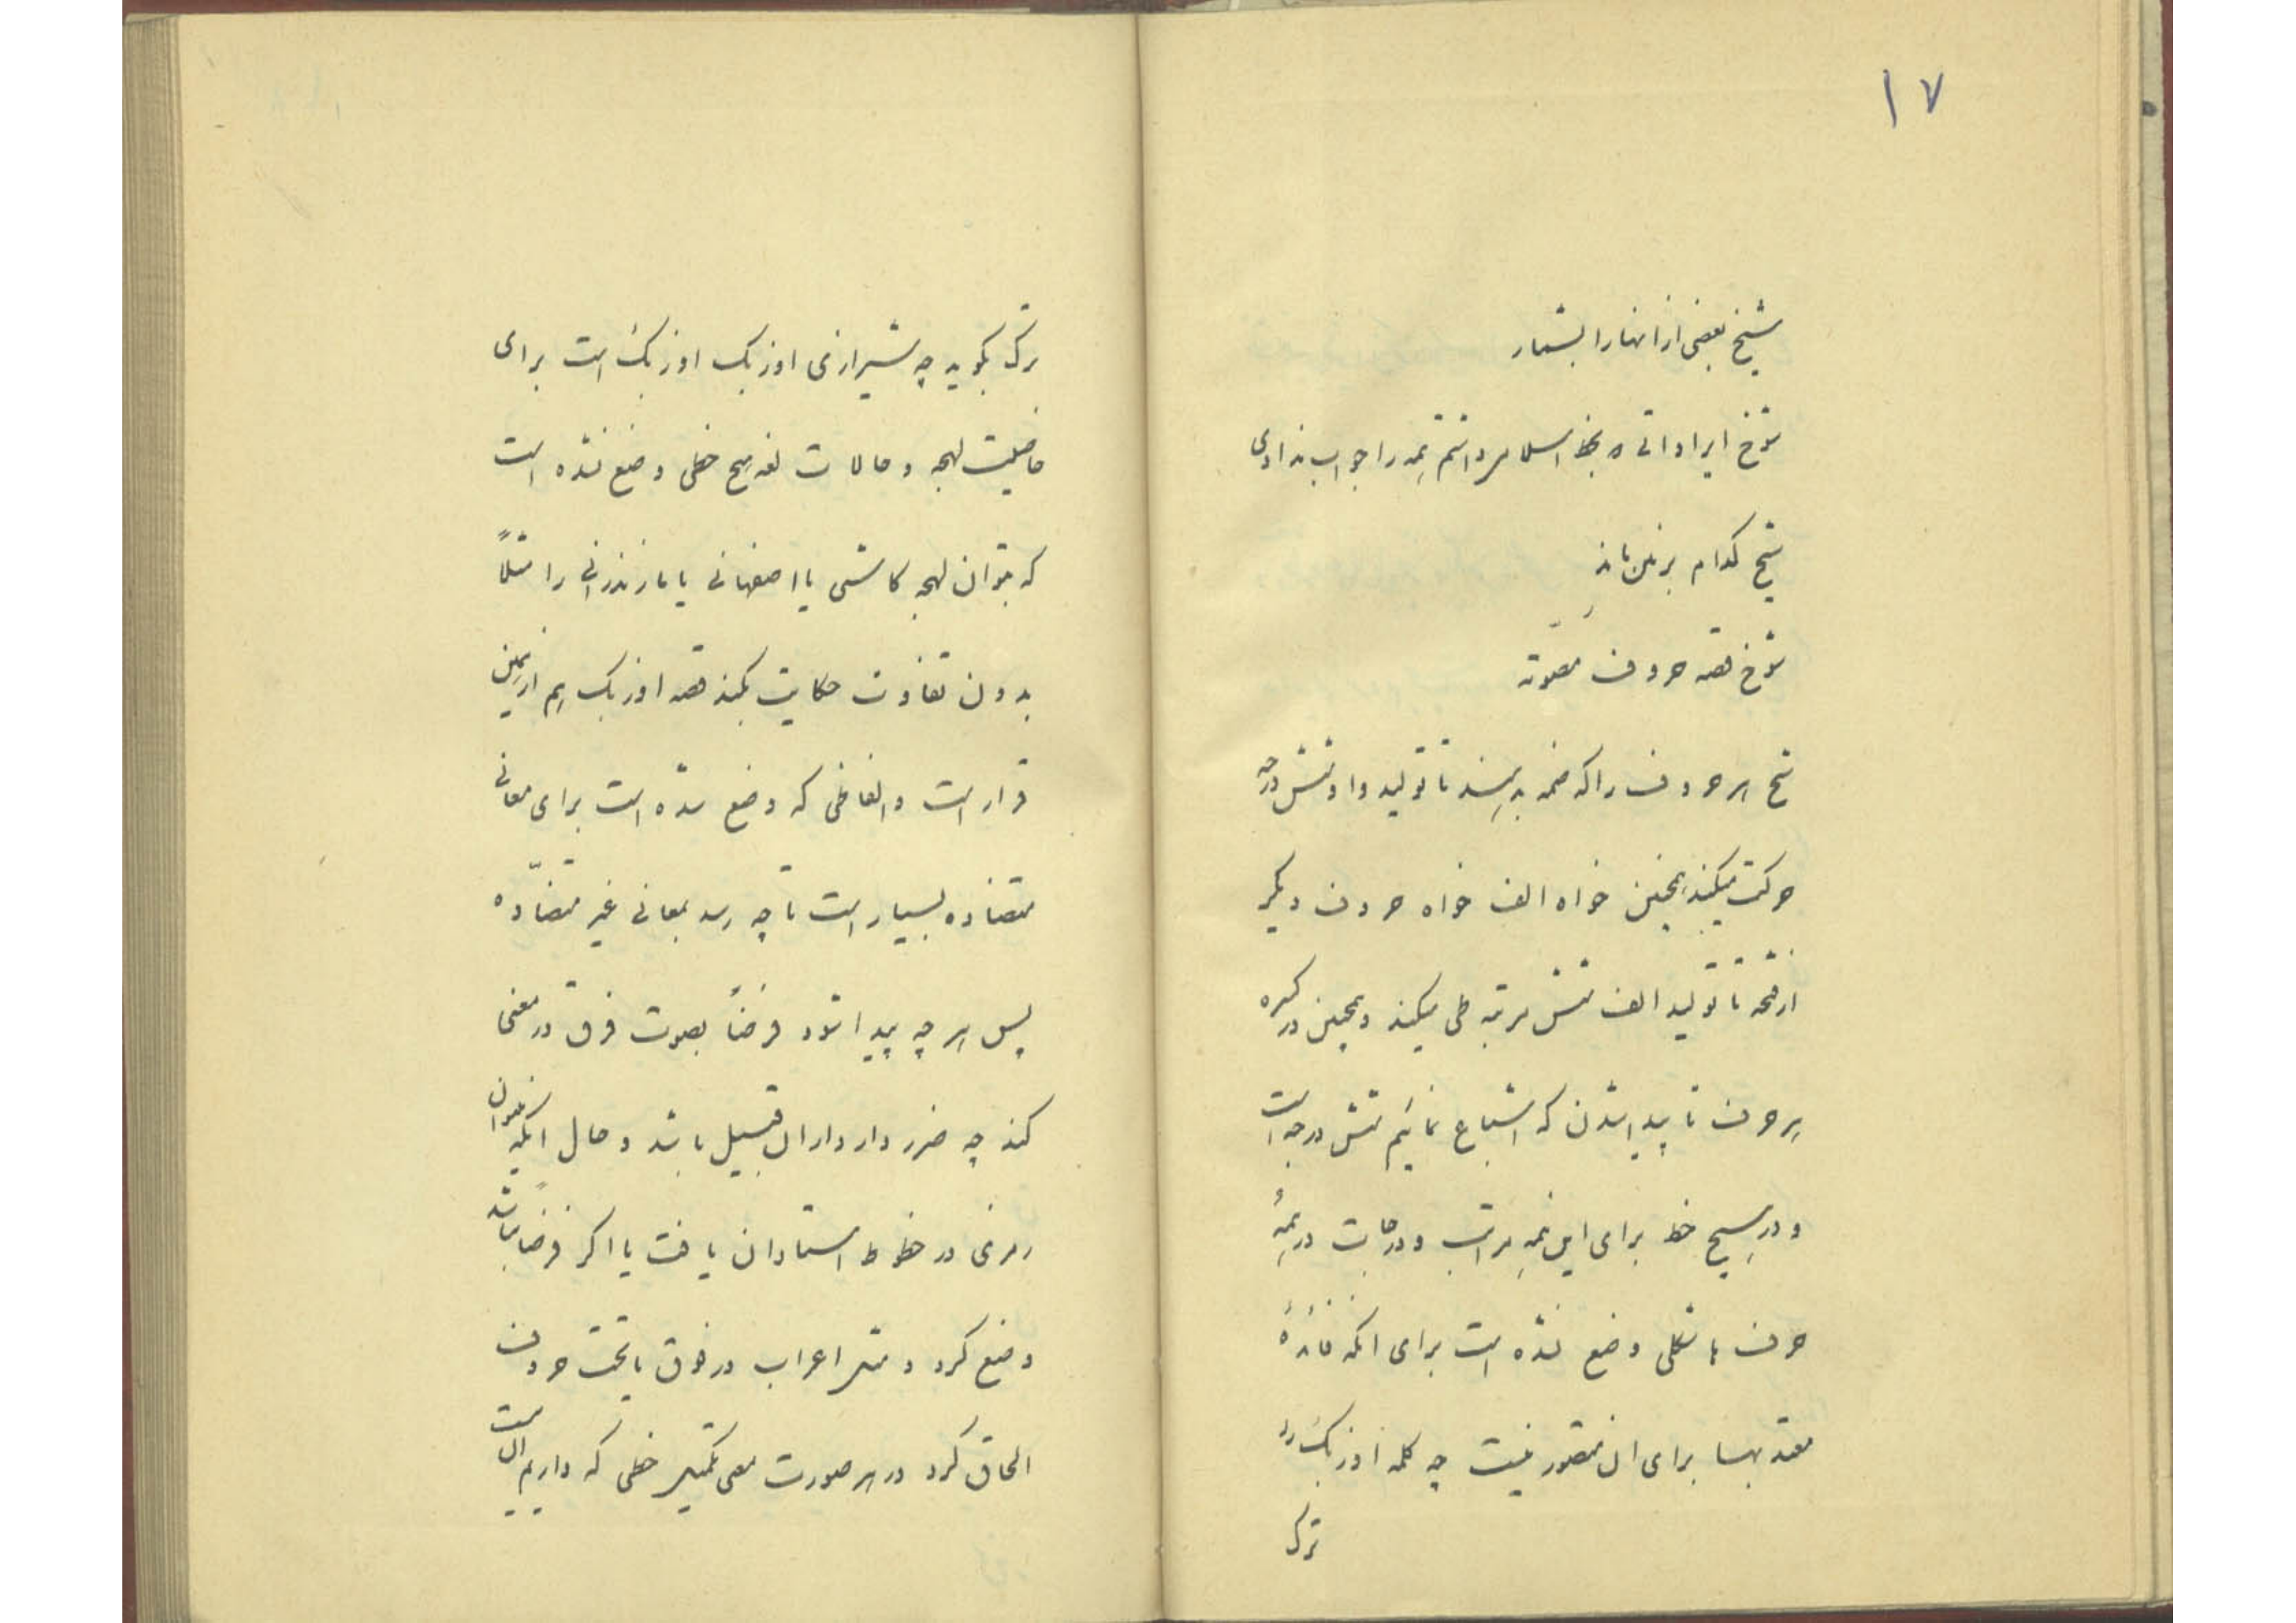 ۱۷
شیخ بعضی از انها را بشمار
شوخ ایراداتی که بخط اسلام داشتم همه را جواب ندادی
شیخ کدام بر زمین ماند
شوخ قصه حروف مصوته
شیخ هر حروف را که ضمه بدهند تا تولید واو شش درجه
حرکت میکند همچنین خواه الف خواه حروف دیگر
از فتحه تا تولید الف شش مرتبه طی میکند و همچنین در کسره
هر حرف تا پیدا شدن که اشباع نمائیم شش درجه است
و در هیچ خط برای این همه مراتب و درجات در همهٔ
حرف ها شکلی وضع نشده است برای انکه فائدهٔ
معتد بها برای ان متصور نیست چه کلمه اوزبک را
ترک
ترک بگوید چه شیرازی اوزبک اوزبک است برای
خاصیت لهجه و حالات لغه هیچ خطی وضع نشده است
که بتوان لهجه کاشی یا اصفهانی یا مازندرانی را مثلاً
بدون تفاوت حکایت بکند قصه اوزبک هم از همین
قرار است و الفاظی که وضع شده است برای معانی
متضاده بسیار است تا چه رسد بمعانی غیر متضادّه
پس هر چه پیدا شود فرضاً بصوت فرق در معنی
کند چه ضرر دارد از ان قبیل باشد و حال انکه میتوان
رمزی در خطوط استادان یافت یا اگر فرضاً نباشد
وضع کرد و مثل اعراب در فوق یا تحت حروف
الحاق کرد در هر صورت معنی تکمیل خطی که داریم ان است